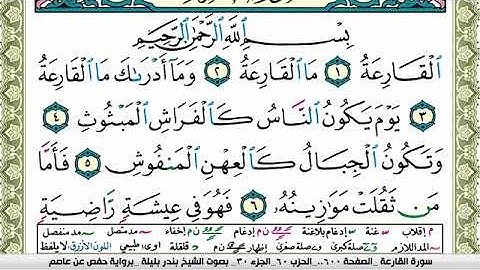 بِسْمِ ٱللَّهِ ٱلرَّحْمَٰنِ ٱلرَّحِيمِ
ٱلْقَارِعَةُ ١ مَا ٱلْقَارِعَةُ ٢ وَمَآ أَدْرَىٰكَ مَا ٱلْقَارِعَةُ
٣ يَوْمَ يَكُونُ ٱلنَّاسُ كَٱلْفَرَاشِ ٱلْمَبْثُوثِ ٤
وَتَكُونُ ٱلْجِبَالُ كَٱلْعِهْنِ ٱلْمَنفُوشِ ٥ فَأَمَّا
مَن ثَقُلَتْ مَوَٰزِينُهُۥ ٦ فَهُوَ فِى عِيشَةٍ رَّاضِيَةٍ
م إقلاب س غنة إدغام إدغام بلاغنة إخفاء مد متصل مد منفصل
المد اللازم صلة كبرى صلة صغرى إظهار قلقلة اوى طبيعي اللون الأزرق لا يلفظ
سورة القارعة _الصفحة ٦٠٠_.. الحزب ٦٠_الجزء ٣٠_ بصوت الشيخ بندر بليلة _برواية حفص عن عاصم